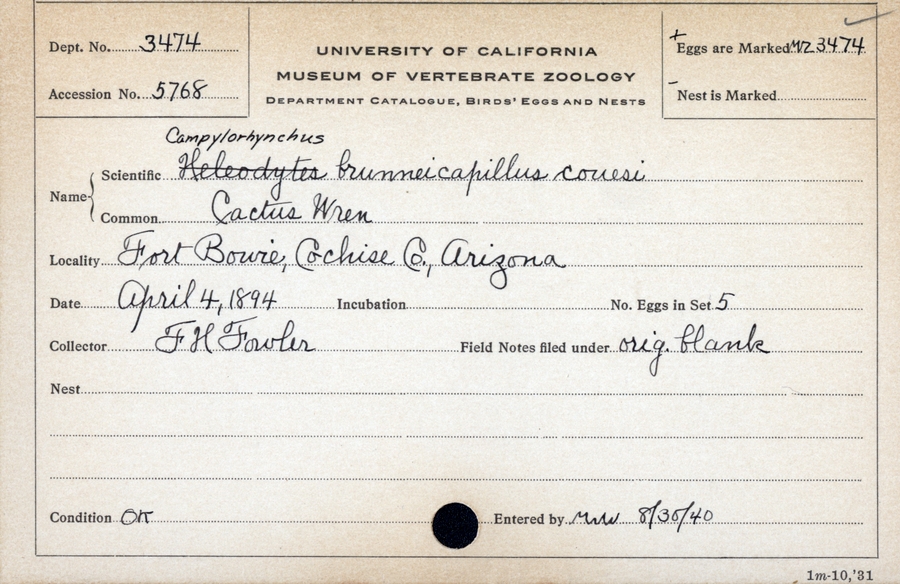 Dept. No. 3474
Accession No. 5768
UNIVERSITY OF CALIFORNIA
MUSEUM OF VERTEBRATE ZOOLOGY
DEPARTMENT CATALOGUE, BIRDS' EGGS AND NESTS
+ Eggs are Marked 3474
- Nest is Marked
Campylorhynchus
Name Scientific Heleodytes brunneicapillus couesi
Common Cactus Wren
Locality Fort Bowie, Cochise Co., Arizona
Date April 4, 1894 Incubation No. Eggs in Set 5
Collector F H Fowler Field Notes filed under orig. blank
Nest
Condition OK Entered by 8/30/40
1m-10,'31